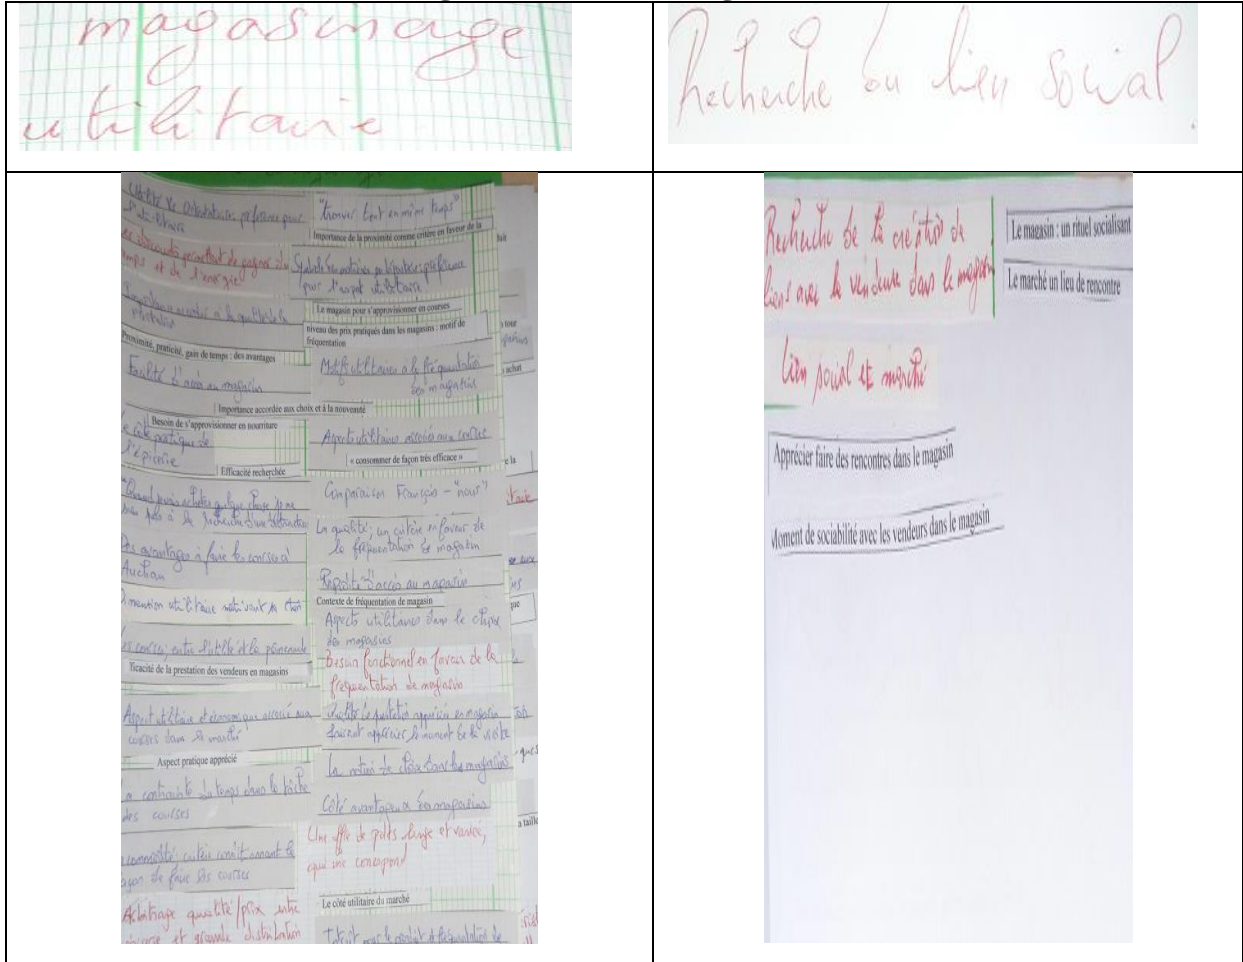 magasinage
utilitaire
Recherche du lien social
préférence pour
l'utilitaire
permettent de gagner du
temps et de l'énergie
Importance accordée à la qualité de la
Proximité, praticité, gain de temps : des avantages
Facilité d'accès au magasin
Importance accordée aux choix et à la nouveauté
Besoin de s'approvisionner en nourriture
côté pratique de
l'épicerie
Efficacité recherchée
"Quand je vais acheter quelque chose je ne
suis pas à la recherche d'une distraction
Des avantages à faire les courses à
Auchan
Dimension utilitaire
Les courses, entre l'utilité et la promenade
ficacité de la prestation des vendeurs en magasins
Aspect utilitaire et économique associé aux
courses dans le marché
Aspect pratique apprécié
La contrainte du temps dans la tâche
des courses
commodité; critère
façon de faire les courses
Arbitrage qualité/prix entre
épicerie et grande distribution
"trouver tout en même temps"
Importance de la proximité comme critère en faveur de la
préférence
pour l'aspect utilitaire
Le magasin pour s'approvisionner en courses
niveau des prix pratiqués dans les magasins : motif de
fréquentation
Motifs utilitaires à la fréquentation
des magasins
Aspects utilitaires associés aux courses
« consommer de façon très efficace »
Comparaison Français - "nous"
La qualité; un critère en faveur de
la fréquentation de magasin
Rapidité d'accès au magasin
Contexte de fréquentation de magasin
Aspects utilitaires dans le choix
des magasins
Besoin fonctionnel en faveur de la
fréquentation de magasin
Qualité de prestation appréciée en magasin
apprécier le moment de la visite
La notion de choix dans les magasins
Côté avantageux des magasins
Une offre de large et variée,
qui me correspond
Le côté utilitaire du marché
Intérêt pour le produit et fréquentation de
Recherche de la création de
liens avec le vendeur dans le magasin
Lien social et marché
Apprécier faire des rencontres dans le magasin
Moment de sociabilité avec les vendeurs dans le magasin
Le magasin : un rituel socialisant
Le marché un lieu de rencontre